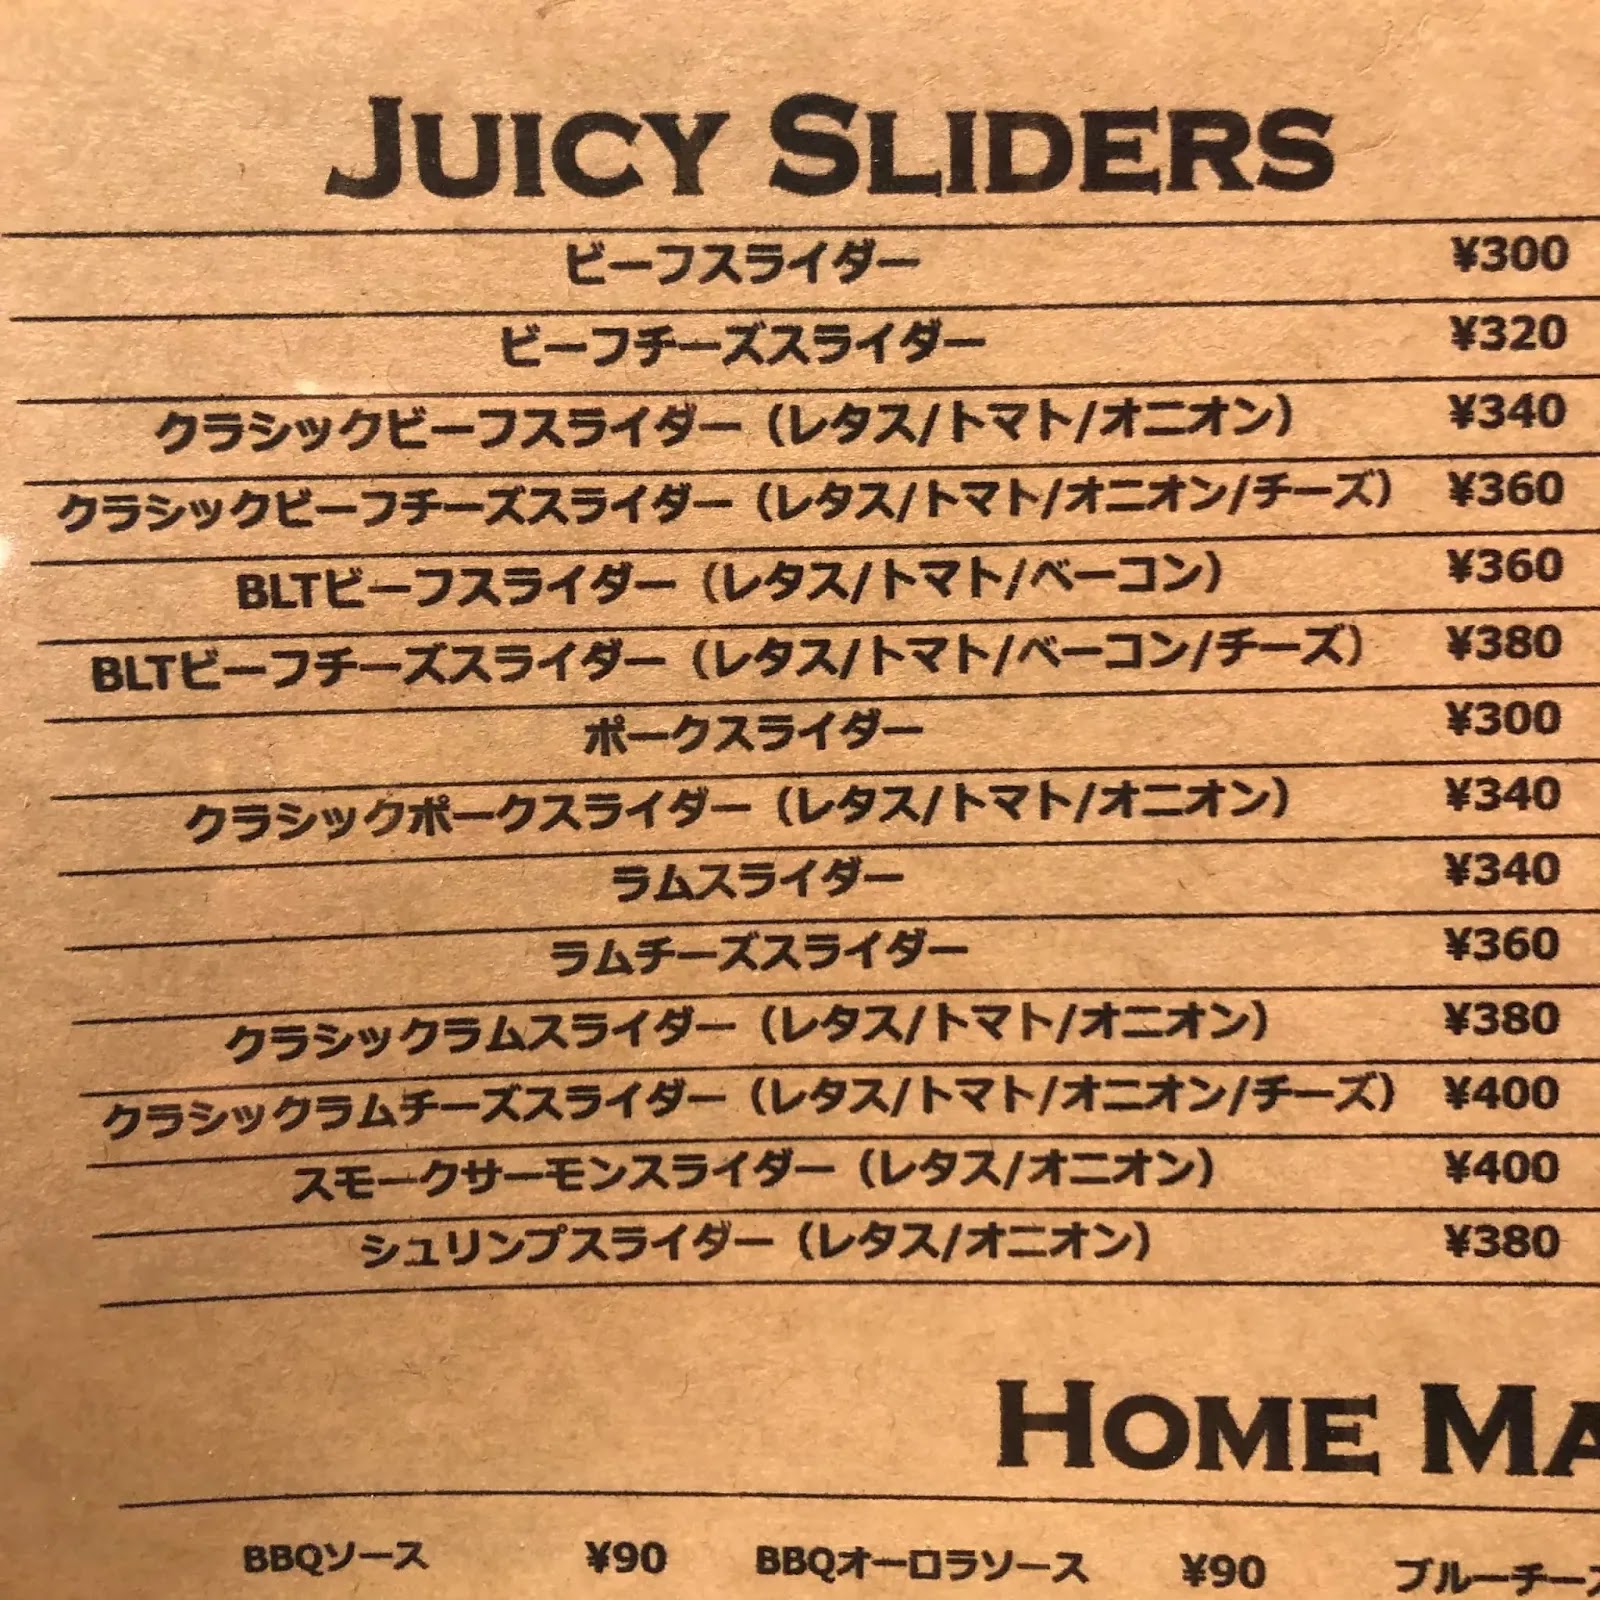 JUICY SLIDERS
ビーフスライダー ¥300
ビーフチーズスライダー ¥320
クラシックビーフスライダー（レタス/トマト/オニオン） ¥340
クラシックビーフチーズスライダー（レタス/トマト/オニオン/チーズ） ¥360
BLTビーフスライダー（レタス/トマト/ベーコン） ¥360
BLTビーフチーズスライダー（レタス/トマト/ベーコン/チーズ） ¥380
ポークスライダー ¥300
クラシックポークスライダー（レタス/トマト/オニオン） ¥340
ラムスライダー ¥340
ラムチーズスライダー ¥360
クラシックラムスライダー（レタス/トマト/オニオン） ¥380
クラシックラムチーズスライダー（レタス/トマト/オニオン/チーズ） ¥400
スモークサーモンスライダー（レタス/オニオン） ¥400
シュリンプスライダー（レタス/オニオン） ¥380
HOME MA
BBQソース ¥90 BBQオーロラソース ¥90 ブルーチーズ